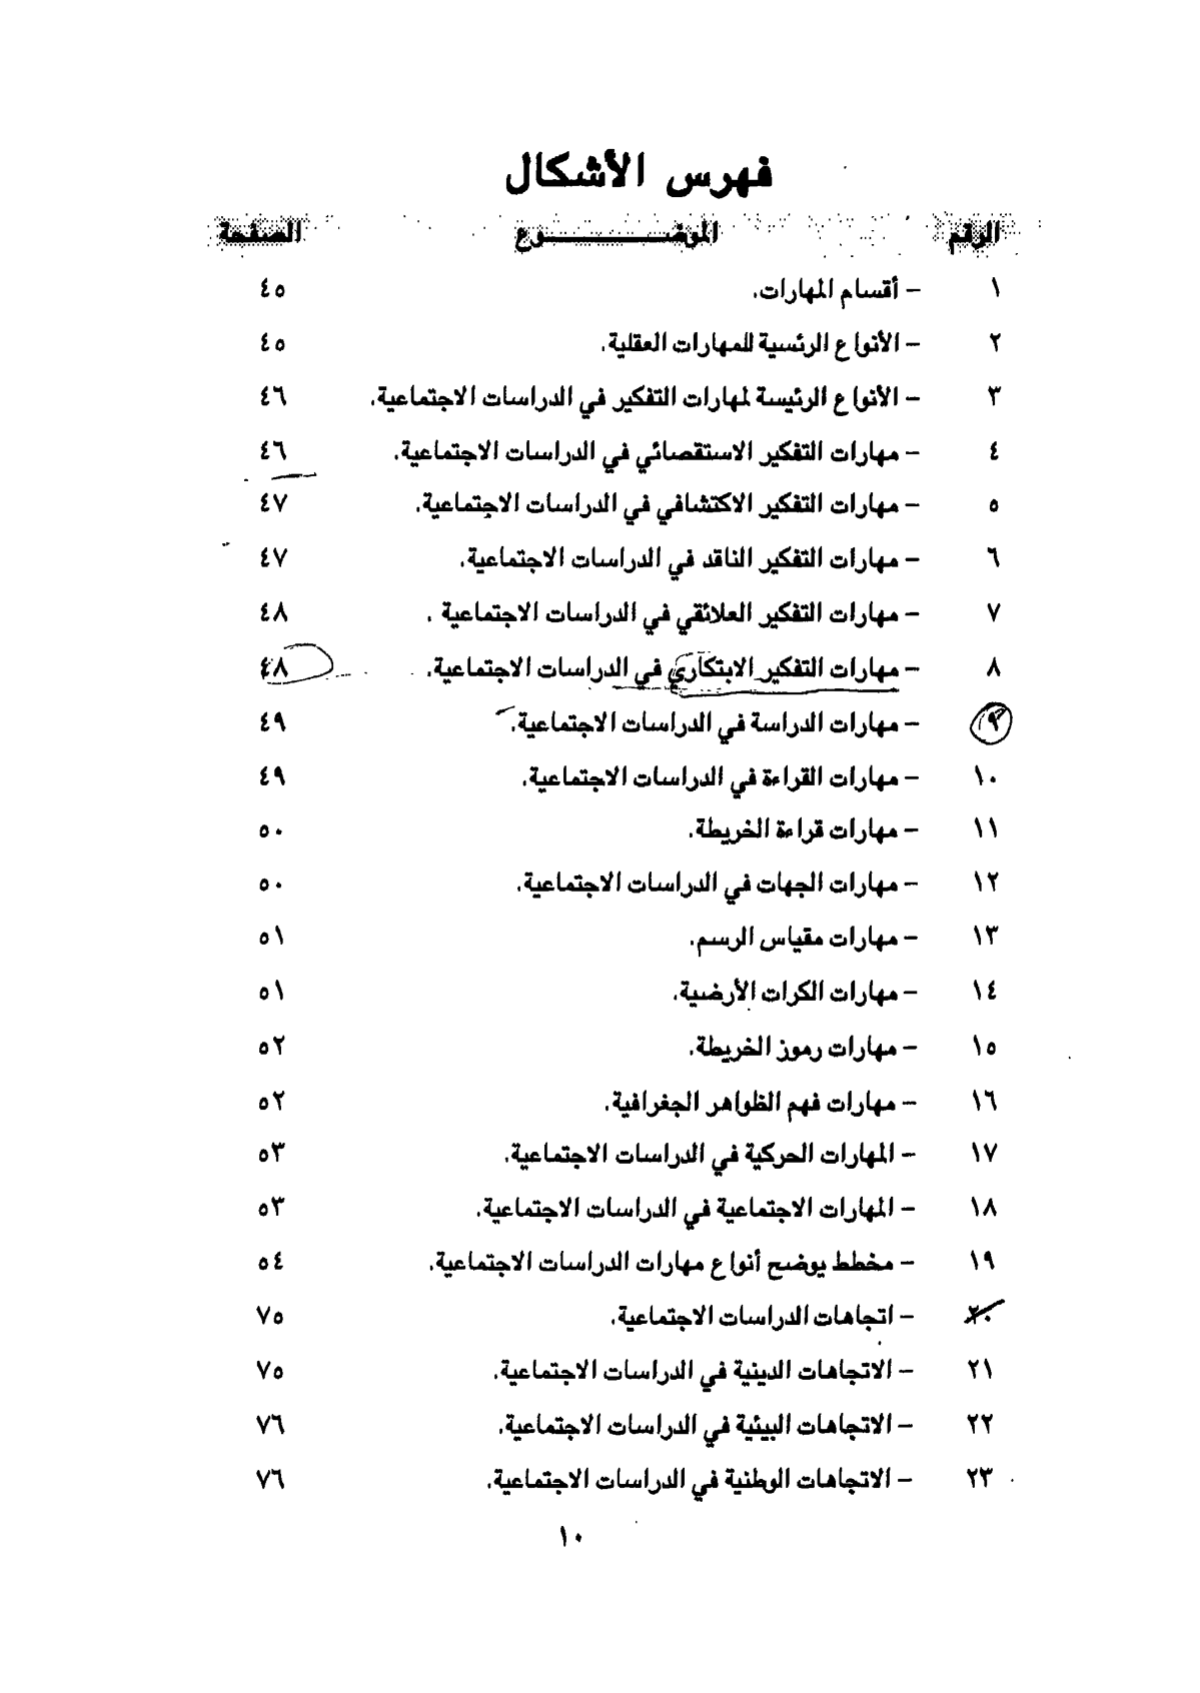 فهرس الأشكال
الرقم الموضـــــــــوع الصفحة
١ – أقسام المهارات. ٤٥
٢ – الأنواع الرئسية للمهارات العقلية. ٤٥
٣ – الأنواع الرئيسة لمهارات التفكير في الدراسات الاجتماعية. ٤٦
٤ – مهارات التفكير الاستقصائي في الدراسات الاجتماعية. ٤٦
٥ – مهارات التفكير الاكتشافي في الدراسات الاجتماعية. ٤٧
٦ – مهارات التفكير الناقد في الدراسات الاجتماعية. ٤٧
٧ – مهارات التفكير العلائقي في الدراسات الاجتماعية . ٤٨
٨ – مهارات التفكير الابتكاري في الدراسات الاجتماعية. ٤٨
٩ – مهارات الدراسة في الدراسات الاجتماعية. ٤٩
١٠ – مهارات القراءة في الدراسات الاجتماعية. ٤٩
١١ – مهارات قراءة الخريطة. ٥٠
١٢ – مهارات الجهات في الدراسات الاجتماعية. ٥٠
١٣ – مهارات مقياس الرسم. ٥١
١٤ – مهارات الكرات الأرضية. ٥١
١٥ – مهارات رموز الخريطة. ٥٢
١٦ – مهارات فهم الظواهر الجغرافية. ٥٢
١٧ – المهارات الحركية في الدراسات الاجتماعية. ٥٣
١٨ – المهارات الاجتماعية في الدراسات الاجتماعية. ٥٣
١٩ – مخطط يوضح أنواع مهارات الدراسات الاجتماعية. ٥٤
٢٠ – اتجاهات الدراسات الاجتماعية. ٧٥
٢١ – الاتجاهات الدينية في الدراسات الاجتماعية. ٧٥
٢٢ – الاتجاهات البيئية في الدراسات الاجتماعية. ٧٦
٢٣ – الاتجاهات الوطنية في الدراسات الاجتماعية. ٧٦
١٠